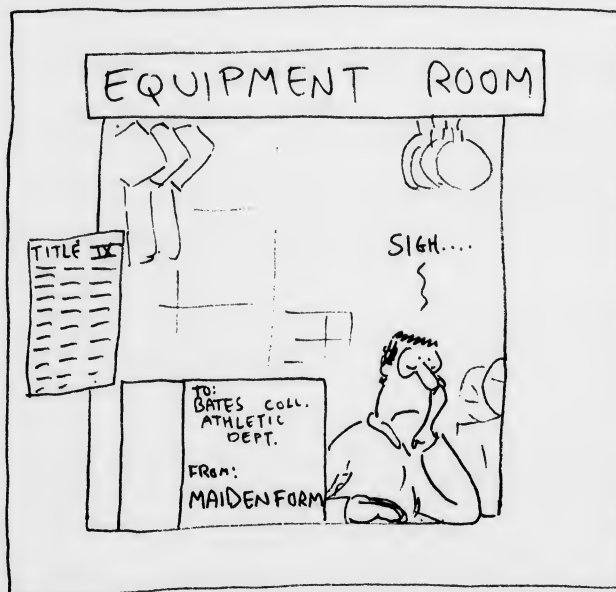 EQUIPMENT ROOM
TITLE IX
SIGH....
TO:
BATES COLL.
ATHLETIC
DEPT.
FROM:
MAIDENFORM